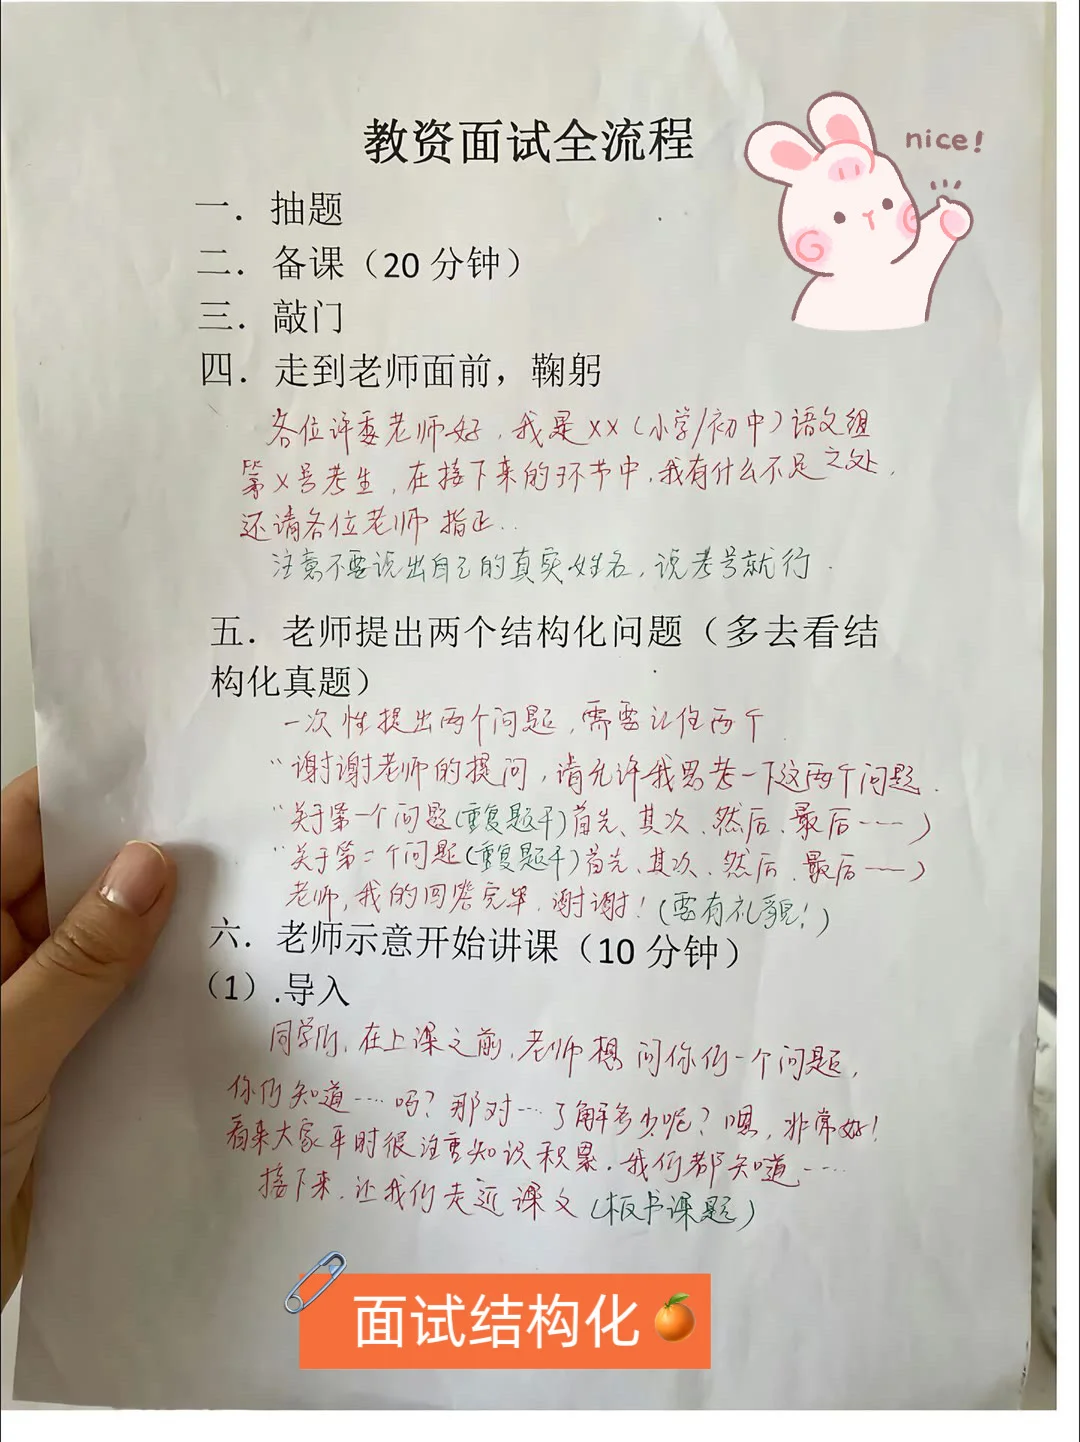 教资面试全流程
nice!
一．抽题
二．备课（20 分钟）
三．敲门
四．走到老师面前，鞠躬
各位评委老师好，我是XX（小学/初中）语文组
第X号考生，在接下来的环节中，我有什么不足之处，
还请各位老师指正..
注意不要说出自己的真实姓名，说考号就行.
五．老师提出两个结构化问题（多去看结
构化真题）
一次性提出两个问题，需要记住两个
“谢谢老师的提问，请允许我思考一下这两个问题.
“关于第一个问题(重复题干)首先、其次、然后、最后……)
“关于第二个问题(重复题干)首先、其次、然后、最后……)
老师，我的回答完毕，谢谢！(要有礼貌！)
六．老师示意开始讲课（10 分钟）
（1）.导入
同学们，在上课之前，老师想问你们一个问题，
你们知道……吗？那对……了解多少呢？嗯，非常好！
看来大家平时很注重知识积累，我们都知道……
接下来，让我们走近课文(板书课题)
面试结构化